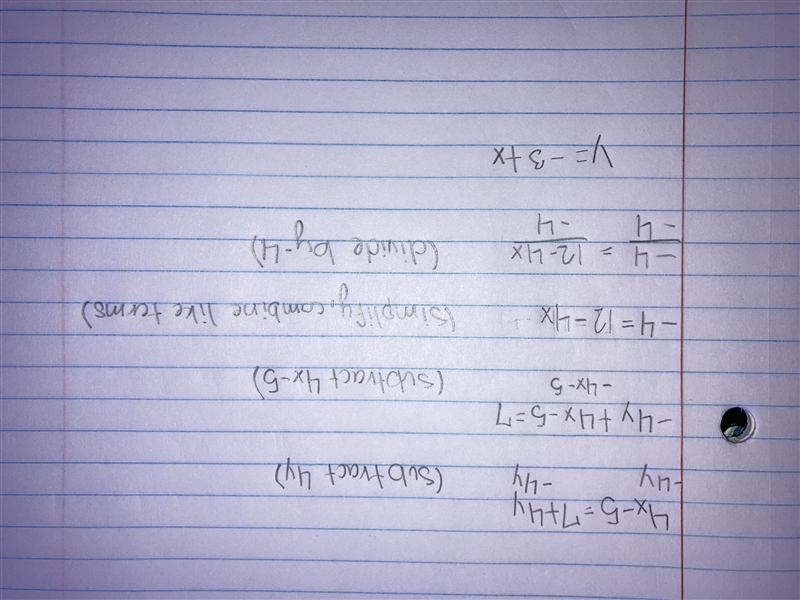 4x-5=7+4y
-4y -4y (subtract 4y)
-4y+4x-5=7
-4x-5 (subtract 4x-5)
-4=12-4x (simplify, combine like terms)
-4/-4 = 12-4x/-4 (divide by -4)
y=-3+x